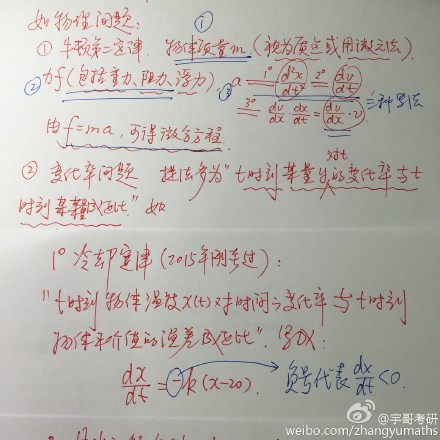 如物理问题:
①
① 牛顿第二定律. 物体质量m.(视为质点或用微元法).
② 力f(包括重力、阻力、浮力), ③ a = 1° d²x/dt² = 2° dv/dt
= 3° dv/dx dx/dt = dv/dx · v 三种写法
由f=ma, 可得微分方程.
② 变化率问题 提法多为"t时刻某量y的变化率与t
对t
时刻某量成正比." 如
1° 冷却定律(2015年刚考过):
"t时刻物体温度x(t)对时间的变化率与t时刻
物体和介质的温差成正比".
dx/dt = -k(x-20). 负号代表dx/dt<0.
@宇哥考研
weibo.com/zhangyumaths